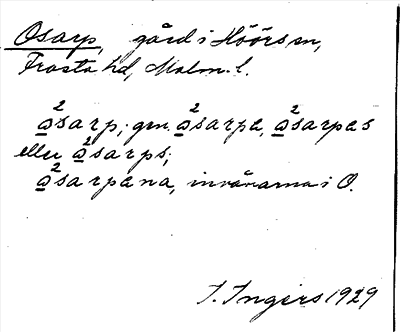 Osarp, gård i Höörs sn,
Frosta hd, Malm. l.
a̲²sarp; gen. a̲²sarpa, a̲²sarpas
eller a̲²sarps;
a̲²sarpana, invånarna i O.
I. Ingers 1929